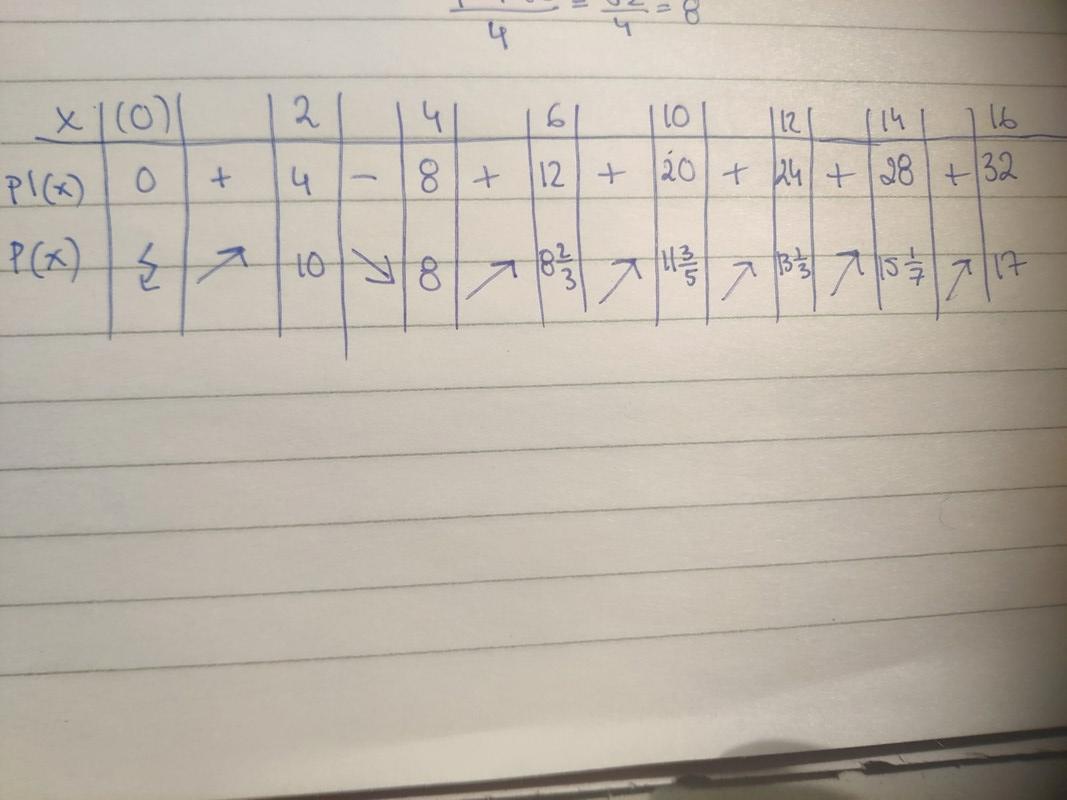 = = 8
4 4
x (0) 2 4 6 10 12 14 16
P'(x) 0 + 4 - 8 + 12 + 20 + 24 + 28 + 32
P(x) ↯ ↗ 10 ↘ 8 ↗ 8 2/3 ↗ 11 3/5 ↗ 13 1/3 ↗ 15 1/7 ↗ 17